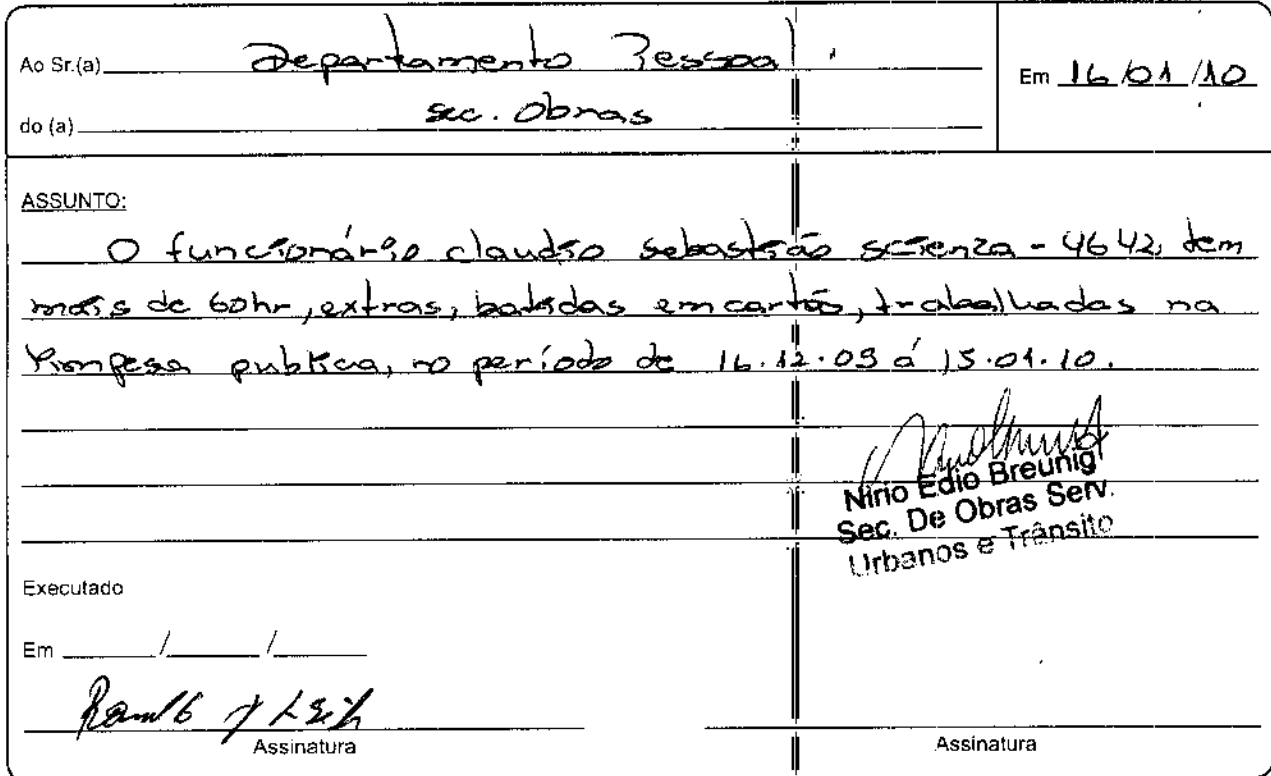 Ao Sr.(a) Departamento Pessoal
Em 16/01/10
do (a) sec. Obras
ASSUNTO:
O funcionário claudio sebastião scienza - 4642, tem
mais de 60hr, extras, batidas em cartão, trabalhadas na
limpesa publica, no período de 16.12.09 á 15.01.10.
Nirio Edio Breunig
Sec. De Obras Serv.
Urbanos e Trânsito
Executado
Em ____/____/____
Assinatura
Assinatura